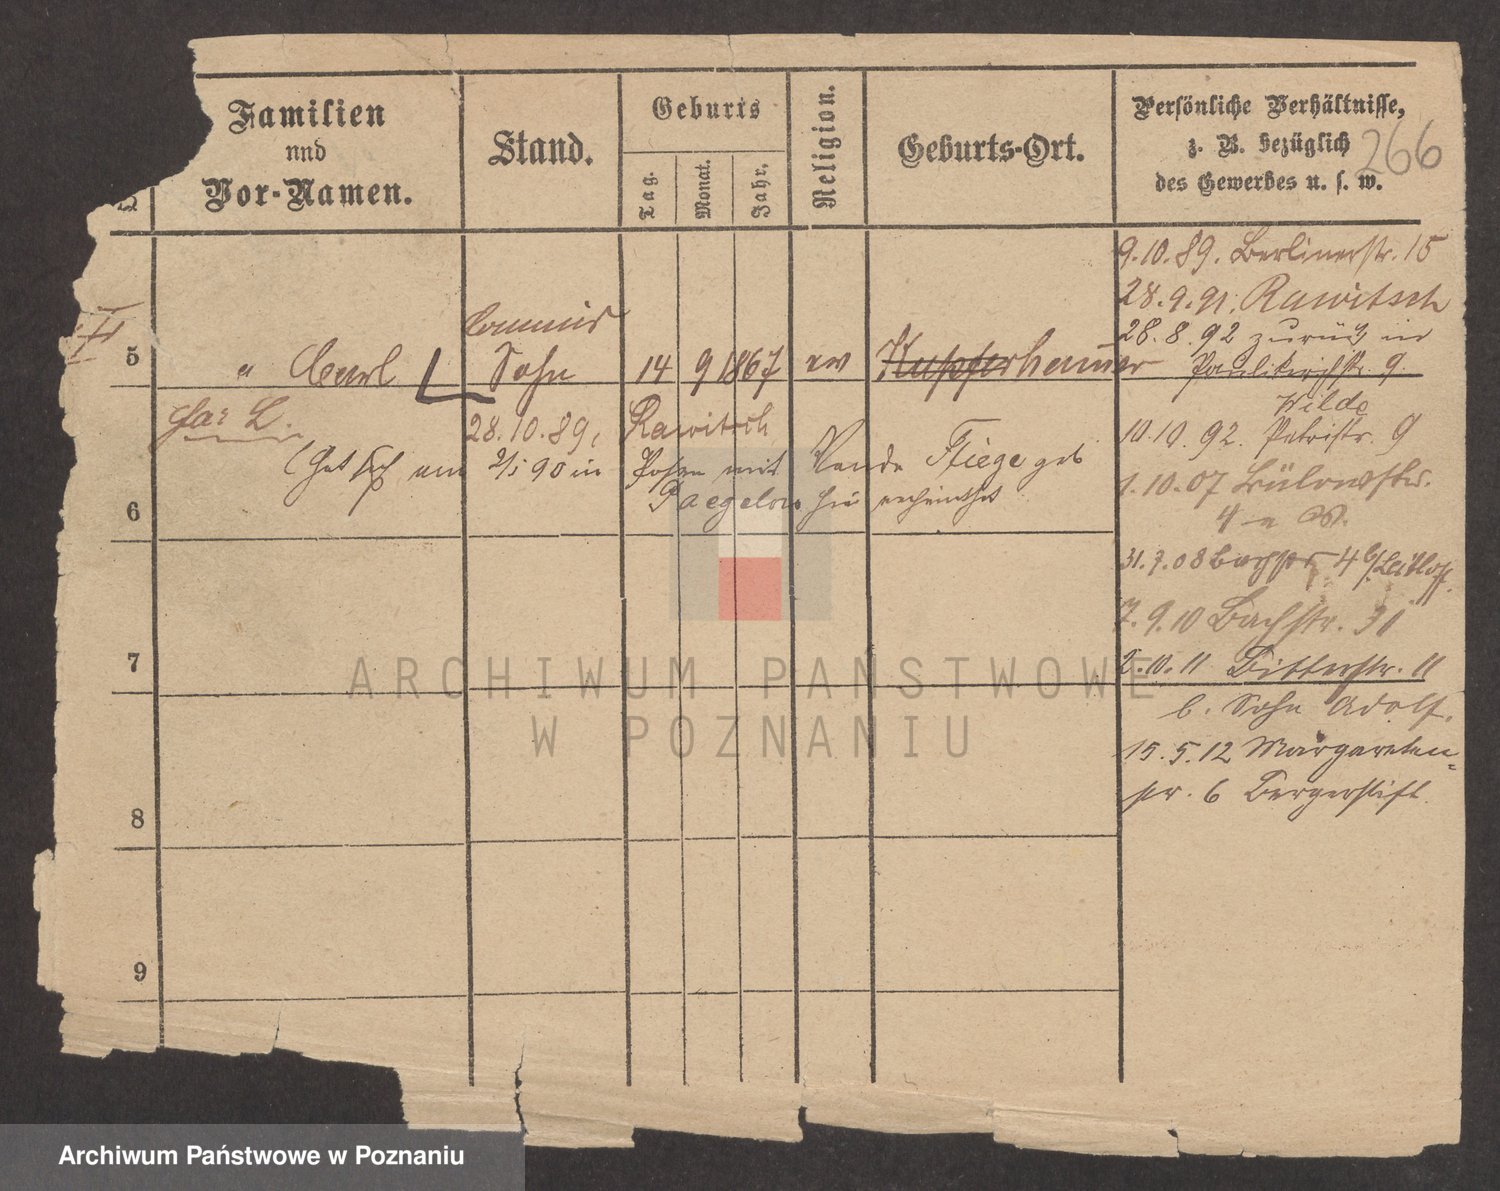 Familien
und
Vor-Namen.
Stand.
Geburts
Tag.
Monat.
Jahr.
Religion.
Geburts-Ort.
Persönliche Verhältnisse,
z. B. bezüglich
des Gewerbes u. s. w.
266
5
" Carl
Commis
Sohn
14 9 1867 ev Kupferhammer
28.10.89, Rawitsch
(hat sich am 2/1 90 in Posen mit Wanda Fiege geb
Paegelow hie verheirathet
6
7
8
9
9.10.89. Berlinerstr. 15
28.9.91. Rawitsch
26.8.92 zurück in
Paulikirchstr. 9.
Wilda
10.10.92. Petristr. 9
1.10.07 Bülowstr.
4
31.7.08 Bachstr 4 b/Leitlof.
7.9.10 Bachstr. 31
2.10.11 Ritterstr. 11
b. Sohn Adolf.
15.5.12 Margareten-
str. 6 Bergerstift.
ARCHIWUM PAŃSTWOWE
W POZNANIU
Archiwum Państwowe w Poznaniu